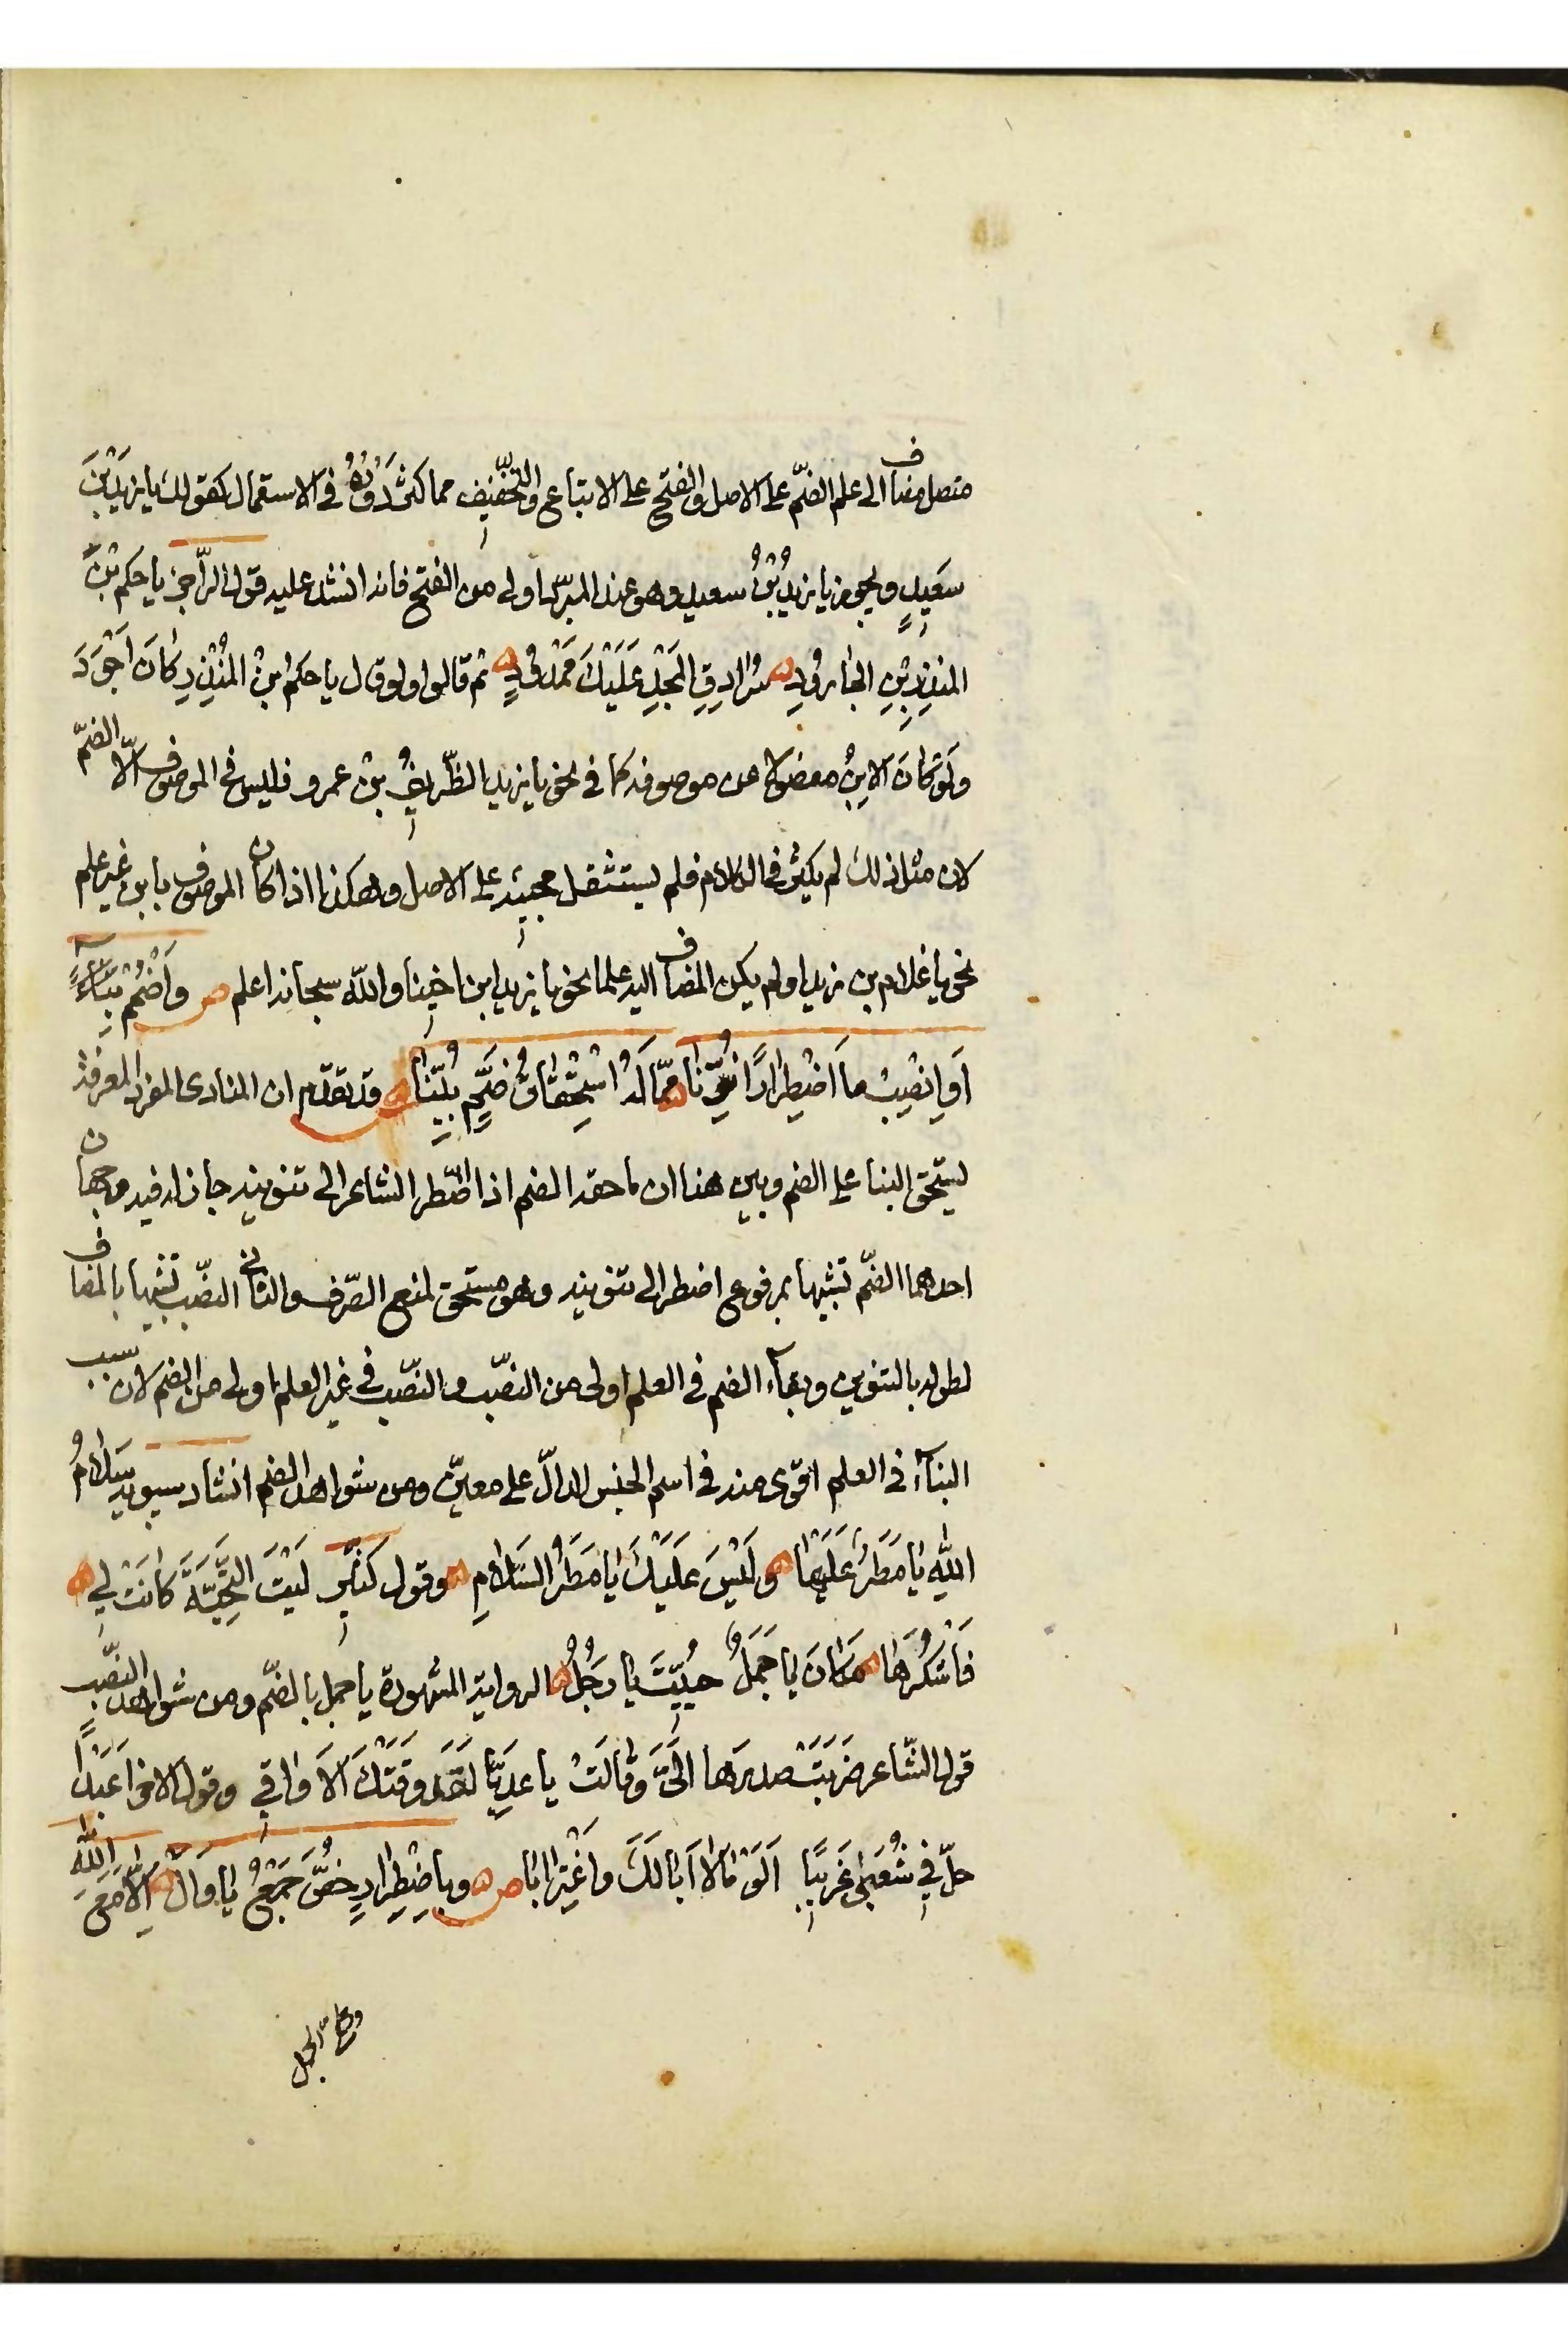 متصل مضاف الى علم الضمّ على الاصل والفتح على الاتباع والتّخفيف مما كثر دَوْرُهُ فى الاستعمال كقولك يا زيدَ بْنَ
سَعِيدٍ ويجوز يا زيدُ بْنُ سعيد وهو عند المبرّد اولى من الفتح فانه انشد عليه قول الرّاجز يا حكم بْنَ
المنذِرِ بْنِ الجَارُودِ سُرَادِقِ المَجْدِ عَلَيْكَ مَمْدُودٍ ثم قالوا ولو قال يا حكمُ ابنَ المُنْذِرِ كَانَ اَجْوَدَ
وَلَوْ كَانَ الابنُ مفصولا عن موصوفه كما فى نحو يا زيد الظّريفُ بن عمرو فليس فى الموصوف الّا الضمّ
لان مثل ذلك لم يكثر فى الكلام فلم يستثقل مجيئه على الاصل وهكذا اذا كان الموصوف بابن غير علم
نحو يا غلام بن زيد او لم يكن المضاف اليه علما نحو يا زيد ابن اخينا والله سبحانه اعلم ص وَاضْمُمْ بِنَاءً
اَوِ انْصِبْ مَا اضْطِرَارًا نُوِّنَا مِمَّا لَهُ اسْتِحْقَاقُ ضَمٍّ بُيِّنَا ش قد تقدّم ان المنادى المفرد المعرفة
يستحق البنا على الضم وبين هنا ان ما حقه الضم اذا اضّطر الشاعر الى تنوينه جاز له فيه وجهان
احدهما الضمّ تشبيها بمرفوع اضطر الى تنوينه وهو مستحق لمنع الصّرف والثانى النصّب تشبيها بالمضاف
لطوله بالتنوين وبقآء الضم فى العلم اولى من النصّب والنصّب فى غير العلم اولى من الضم لان سبب
البنآء فى العلم اقوى منه فى اسم الجنس الدالّ على معيّن ومن شواهد الضم انشاد سيبويه سَلَامُ
اللهِ يَا مَطَرٌ عَلَيْهَا وَلَيْسَ عَلَيْكَ يَا مَطَرُ السَّلَامِ وقول كثير لَيْتَ التَّحِيَّةَ كَانَتْ لِي
فَاَشْكُرَهَا مَكَانَ يَا جَمَلٌ حُيِّيتَ يَا رَجُلُ الرواية المشهورة يا جمل بالضمّ ومن شواهد النصّب
قول الشّاعر ضَرَبَتْ صدرَهَا اِلَىَّ وَقَالَتْ يا عَدِيًّا لَقَد وَقَتْكَ الَاوَاقِي وقول الاخر اَعَبْدًا
حلّ فِي شُعَبَى غَرِيبًا اَلَوْمًا لَا اَبَا لَكَ وَاغْتِرَابًا ص وبِاضْطِرَارٍ خُصَّ جَمْعُ يَا وَالْ اِلَّا مَعَ اللهِ